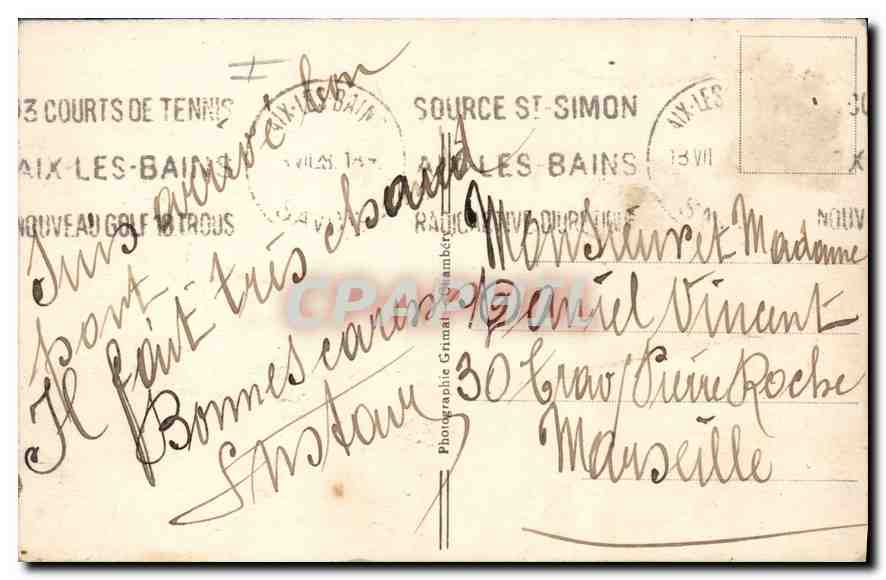 3 COURTS DE TENNIS
AIX-LES-BAINS
NOUVEAU GOLF 18 TROUS
AIX-LES-BAINS
SOURCE ST-SIMON
AIX-LES-BAINS
AIX-LES
18 VII
NOUV
Suis arrivé à bon
port
Il fait très chaud
Bonnes caresses
Photographie Grimal - Chambéry
Monsieur et Madame
Daniel Vincent
30 Trav/ Pierre Roche
Marseille
CPAPHIL